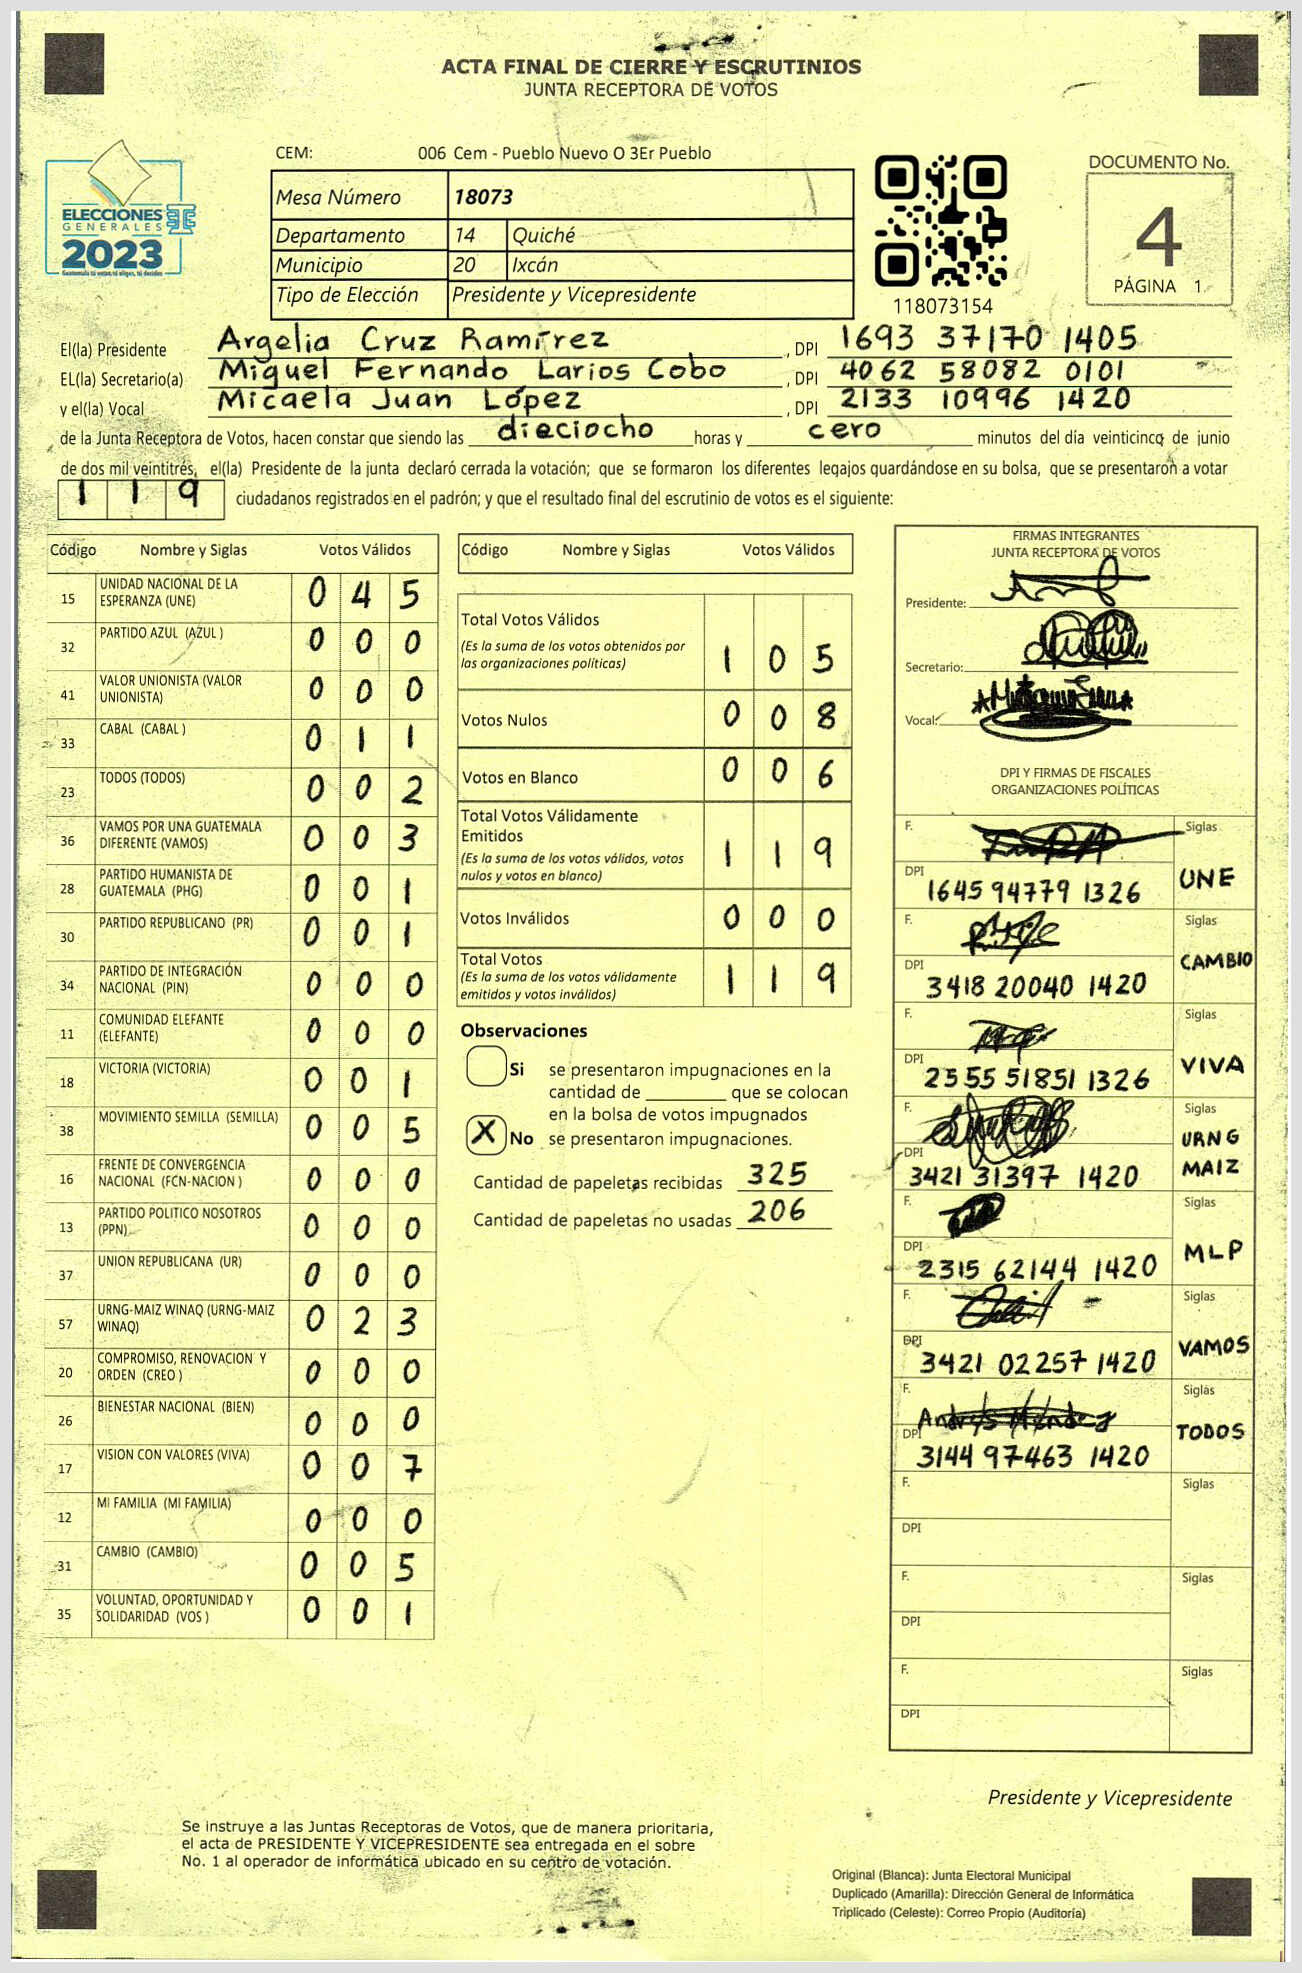 ACTA FINAL DE CIERRE Y ESCRUTINIOS
JUNTA RECEPTORA DE VOTOS
ELECCIONES
GENERALES
2023
CEM: 006 Cem - Pueblo Nuevo O 3Er Pueblo
Mesa Número 18073
Departamento 14 Quiché
Municipio 20 Ixcán
Tipo de Elección Presidente y Vicepresidente
118073154
DOCUMENTO No.
4
PÁGINA 1
El(la) Presidente Argelia Cruz Ramírez , DPI 1693 37170 1405
EL(la) Secretario(a) Miguel Fernando Larios Cobo , DPI 4062 58082 0101
y el(la) Vocal Micaela Juan López , DPI 2133 10996 1420
de la Junta Receptora de Votos, hacen constar que siendo las dieciocho horas y cero minutos del día veinticinco de junio
de dos mil veintitrés, el(la) Presidente de la junta declaró cerrada la votación; que se formaron los diferentes legajos guardándose en su bolsa, que se presentaron a votar
119 ciudadanos registrados en el padrón; y que el resultado final del escrutinio de votos es el siguiente:
Código Nombre y Siglas Votos Válidos
15 UNIDAD NACIONAL DE LA ESPERANZA (UNE) 0 4 5
32 PARTIDO AZUL (AZUL ) 0 0 0
41 VALOR UNIONISTA (VALOR UNIONISTA) 0 0 0
33 CABAL (CABAL ) 0 1 1
23 TODOS (TODOS) 0 0 2
36 VAMOS POR UNA GUATEMALA DIFERENTE (VAMOS) 0 0 3
28 PARTIDO HUMANISTA DE GUATEMALA (PHG) 0 0 1
30 PARTIDO REPUBLICANO (PR) 0 0 1
34 PARTIDO DE INTEGRACIÓN NACIONAL (PIN) 0 0 0
11 COMUNIDAD ELEFANTE (ELEFANTE) 0 0 0
18 VICTORIA (VICTORIA) 0 0 1
38 MOVIMIENTO SEMILLA (SEMILLA) 0 0 5
16 FRENTE DE CONVERGENCIA NACIONAL (FCN-NACION ) 0 0 0
13 PARTIDO POLITICO NOSOTROS (PPN) 0 0 0
37 UNION REPUBLICANA (UR) 0 0 0
57 URNG-MAIZ WINAQ (URNG-MAIZ WINAQ) 0 2 3
20 COMPROMISO, RENOVACION Y ORDEN (CREO ) 0 0 0
26 BIENESTAR NACIONAL (BIEN) 0 0 0
17 VISION CON VALORES (VIVA) 0 0 7
12 MI FAMILIA (MI FAMILIA) 0 0 0
31 CAMBIO (CAMBIO) 0 0 5
35 VOLUNTAD, OPORTUNIDAD Y SOLIDARIDAD (VOS ) 0 0 1
Código Nombre y Siglas Votos Válidos
Total Votos Válidos
(Es la suma de los votos obtenidos por
las organizaciones políticas) 1 0 5
Votos Nulos 0 0 8
Votos en Blanco 0 0 6
Total Votos Válidamente
Emitidos
(Es la suma de los votos válidos, votos
nulos y votos en blanco) 1 1 9
Votos Inválidos 0 0 0
Total Votos
(Es la suma de los votos válidamente
emitidos y votos inválidos) 1 1 9
Observaciones
Si se presentaron impugnaciones en la
cantidad de ________ que se colocan
en la bolsa de votos impugnados
X No se presentaron impugnaciones.
Cantidad de papeletas recibidas 325
Cantidad de papeletas no usadas 206
FIRMAS INTEGRANTES
JUNTA RECEPTORA DE VOTOS
Presidente:
Secretario:
Vocal:
DPI Y FIRMAS DE FISCALES
ORGANIZACIONES POLÍTICAS
F. Siglas
DPI 1645 94779 1326 UNE
F. Siglas
DPI 3418 20040 1420 CAMBIO
F. Siglas
DPI 2555 51851 1326 VIVA
F. Siglas
DPI 3421 31397 1420 URNG MAIZ
F. Siglas
DPI 2315 62144 1420 MLP
F. Siglas
DPI 3421 02257 1420 VAMOS
F. Andrés Méndez Siglas
DPI 3144 97463 1420 TODOS
F. Siglas
DPI
F. Siglas
DPI
F. Siglas
DPI
Presidente y Vicepresidente
Se instruye a las Juntas Receptoras de Votos, que de manera prioritaria,
el acta de PRESIDENTE Y VICEPRESIDENTE sea entregada en el sobre
No. 1 al operador de informática ubicado en su centro de votación.
Original (Blanca): Junta Electoral Municipal
Duplicado (Amarilla): Dirección General de Informática
Triplicado (Celeste): Correo Propio (Auditoría)